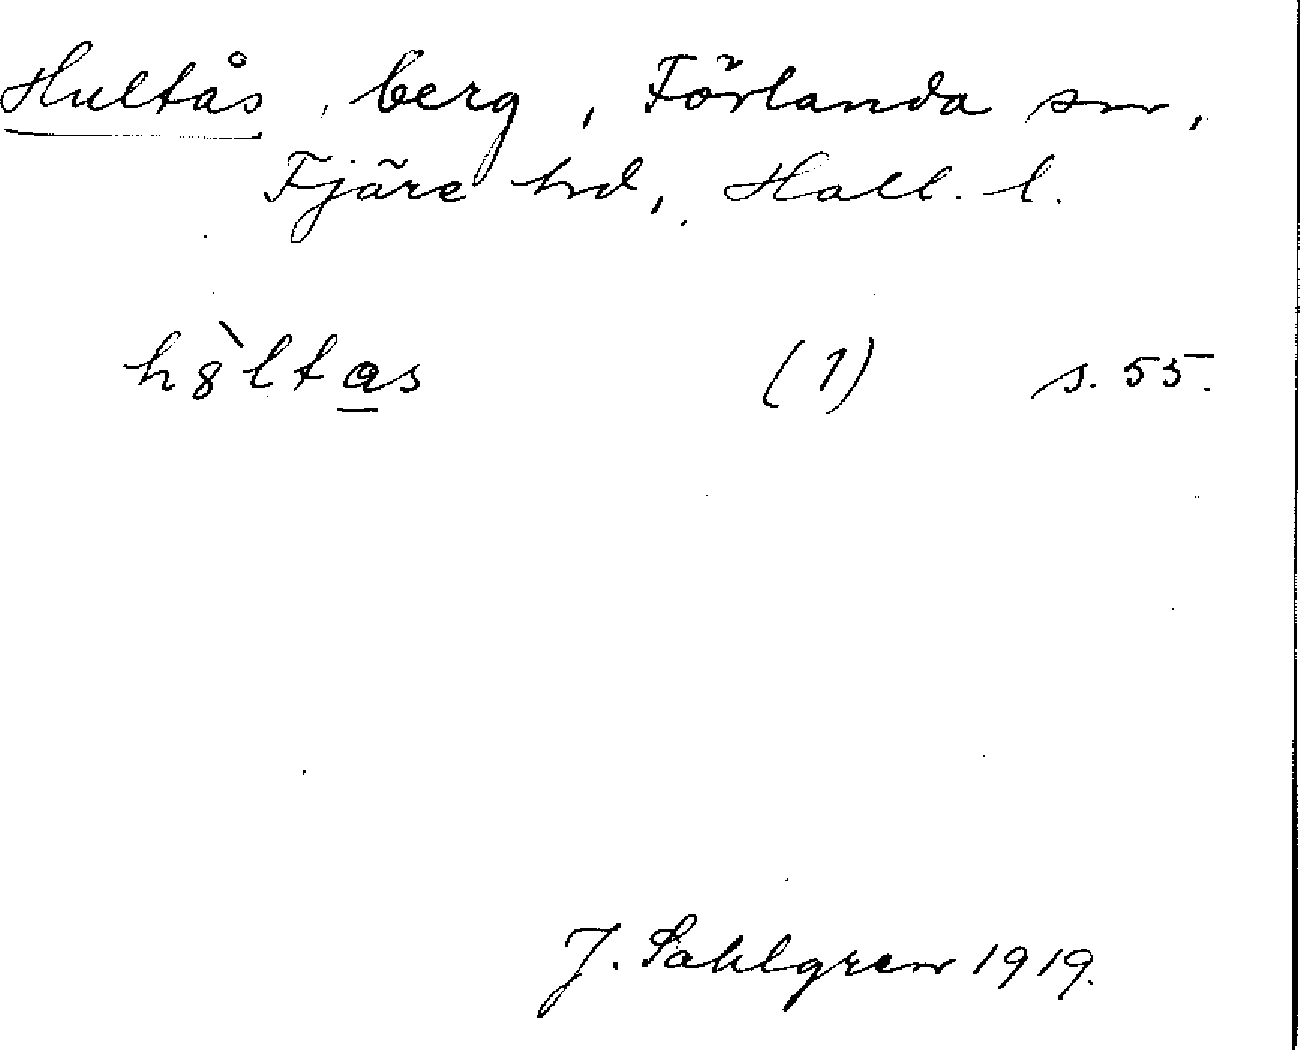 Hultås, berg, Förlanda sn,
Fjäre hd, Hall. l.
hȣ̀ltas (1) s. 55.
J. Sahlgren 1919.